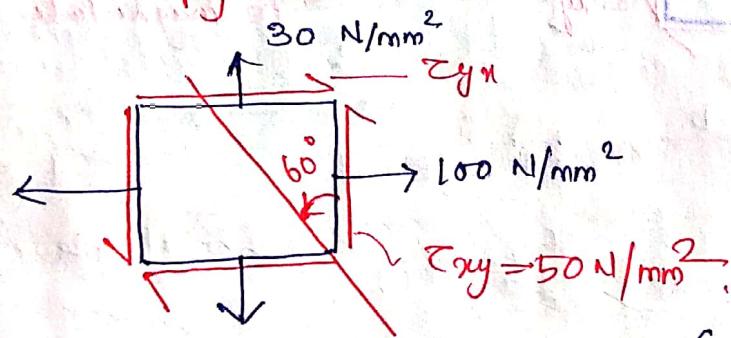 30 N/mm²
τyx
60°
100 N/mm²
τxy = 50 N/mm²